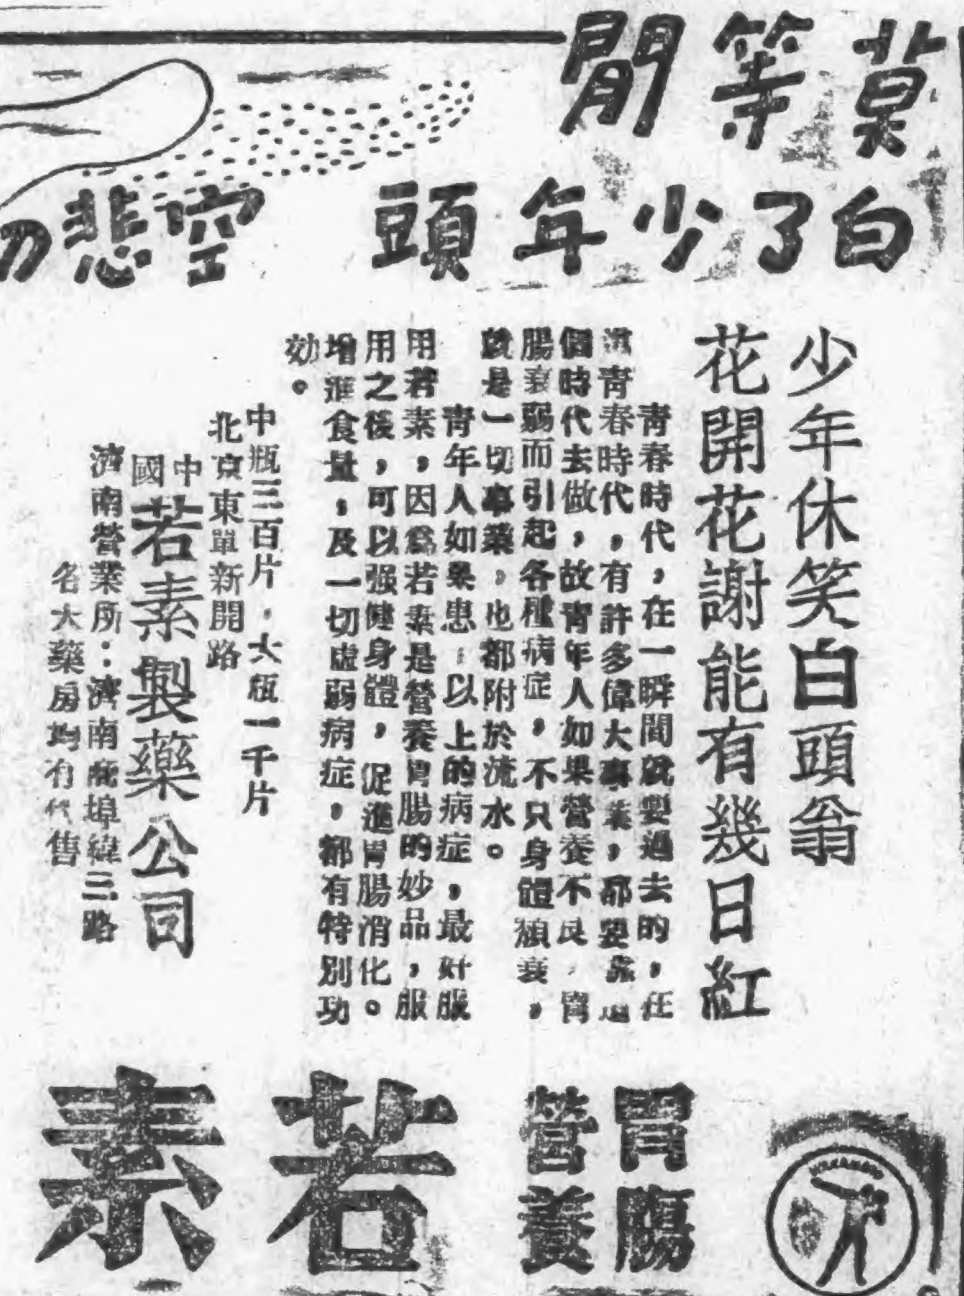 莫等閒
白了少年頭 空悲切
少年休笑白頭翁
花開花謝能有幾日紅
青春時代，在一瞬間就要過去的，在
青春時代，有許多偉大事業，都要靠這
個時代去做，故青年人如果營養不良，胃
腸衰弱而引起各種病症，不只身體頹衰，
就是一切事業，也都附於流水。
青年人如果患以上的病症，最好服
用若素，因爲若素是營養胃腸的妙品，服
用之後，可以强健身體，促進胃腸消化。
增進食量，及一切虛弱病症，都有特別功
効。
中瓶三百片，大瓶一千片
北京東單新開路
中國若素製藥公司
濟南營業所：濟南商埠緯三路
各大藥房均有代售
胃腸
營養
若素